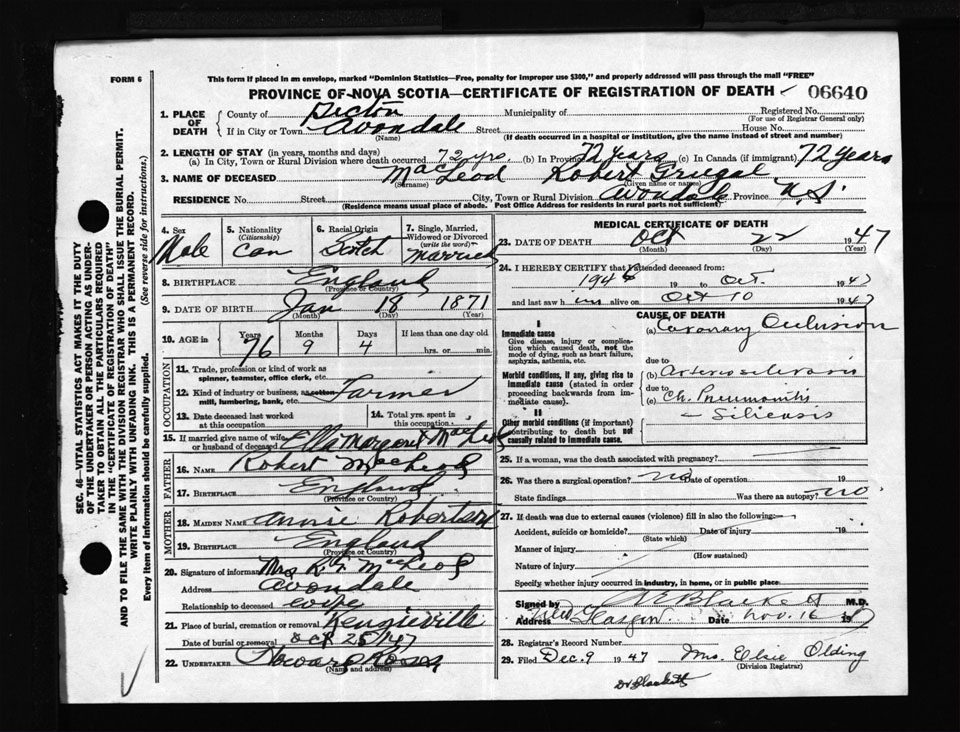 FORM 6
This form if placed in an envelope, marked "Dominion Statistics—Free, penalty for improper use $300," and properly addressed will pass through the mail "FREE"
PROVINCE OF NOVA SCOTIA—CERTIFICATE OF REGISTRATION OF DEATH 06640
1. PLACE OF DEATH County of Pictou Municipality of Registered No. (For use of Registrar General only)
If in City or Town Avondale (Name) Street House No.
(If death occurred in a hospital or institution, give the name instead of street and number)
2. LENGTH OF STAY (in years, months and days)
(a) In City, Town or Rural Division where death occurred 72 yrs. (b) In Province 72 years (c) In Canada (if immigrant) 72 years
3. NAME OF DECEASED MacLeod (Surname) Robert (Given name or names)
RESIDENCE No. Street City, Town or Rural Division Avondale Province N.S.
(Residence means usual place of abode. Post Office Address for residents in rural parts not sufficient)
4. Sex Male
5. Nationality (Citizenship) Can
6. Racial Origin Scotch
7. Single, Married, Widowed or Divorced (write the word) Married
8. BIRTHPLACE England (Province or Country)
9. DATE OF BIRTH Jan (Month) 18 (Day) 1871 (Year)
10. AGE in Years 76 Months 9 Days 4 If less than one day old hrs. or min.
OCCUPATION
11. Trade, profession or kind of work as spinner, teamster, office clerk, etc.
12. Kind of industry or business, as cotton mill, lumbering, bank, etc. Farmer
13. Date deceased last worked at this occupation
14. Total yrs. spent in this occupation
15. If married give name of wife or husband of deceased Ella Margaret MacLeod
FATHER
16. NAME Robert MacLeod
17. BIRTHPLACE England (Province or Country)
MOTHER
18. MAIDEN NAME Annie Robertson
19. BIRTHPLACE England (Province or Country)
20. Signature of informant Mrs R. G. MacLeod
Address Avondale
Relationship to deceased wife
21. Place of burial, cremation or removal Kenzieville
Date of burial or removal Oct 25/47
22. UNDERTAKER Howard (Name and address)
MEDICAL CERTIFICATE OF DEATH
23. DATE OF DEATH Oct (Month) 22 (Day) 1947
24. I HEREBY CERTIFY that I attended deceased from:
1946 19 to Oct. 1947
and last saw him alive on Oct 10 1947
CAUSE OF DEATH
I
Immediate cause
Give disease, injury or complication which caused death, not the mode of dying, such as heart failure, asphyxia, asthenia, etc.
(a) Coronary Occlusion
due to
Morbid conditions, if any, giving rise to immediate cause (stated in order proceeding backwards from immediate cause).
(b) Arteriosclerosis
due to
(c) Ch. Pneumonitis
II
Other morbid conditions (if important) contributing to death but not causally related to immediate cause.
— Silicosis
25. If a woman, was the death associated with pregnancy?
26. Was there a surgical operation? no Date of operation 19
State findings Was there an autopsy? no
27. If death was due to external causes (violence) fill in also the following:
Accident, suicide or homicide? (State which) Date of injury 19
Manner of injury (How sustained)
Nature of injury
Specify whether injury occurred in industry, in home, or in public place
Signed by Blackett M.D.
Address New Glasgow Date Nov. 16 1947
28. Registrar's Record Number
29. Filed Dec. 9 1947 Mrs. Elsie Olding (Division Registrar)
Dr Blackett
SEC. 46—VITAL STATISTICS ACT MAKES IT THE DUTY
OF THE UNDERTAKER OR PERSON ACTING AS UNDERTAKER TO OBTAIN ALL THE PARTICULARS REQUIRED
IN THE "CERTIFICATE OF REGISTRATION OF DEATH"
AND TO FILE THE SAME WITH THE DIVISION REGISTRAR WHO SHALL ISSUE THE BURIAL PERMIT.
WRITE PLAINLY WITH UNFADING INK. THIS IS A PERMANENT RECORD.
Every item of Information should be carefully supplied. (See reverse side for instructions.)